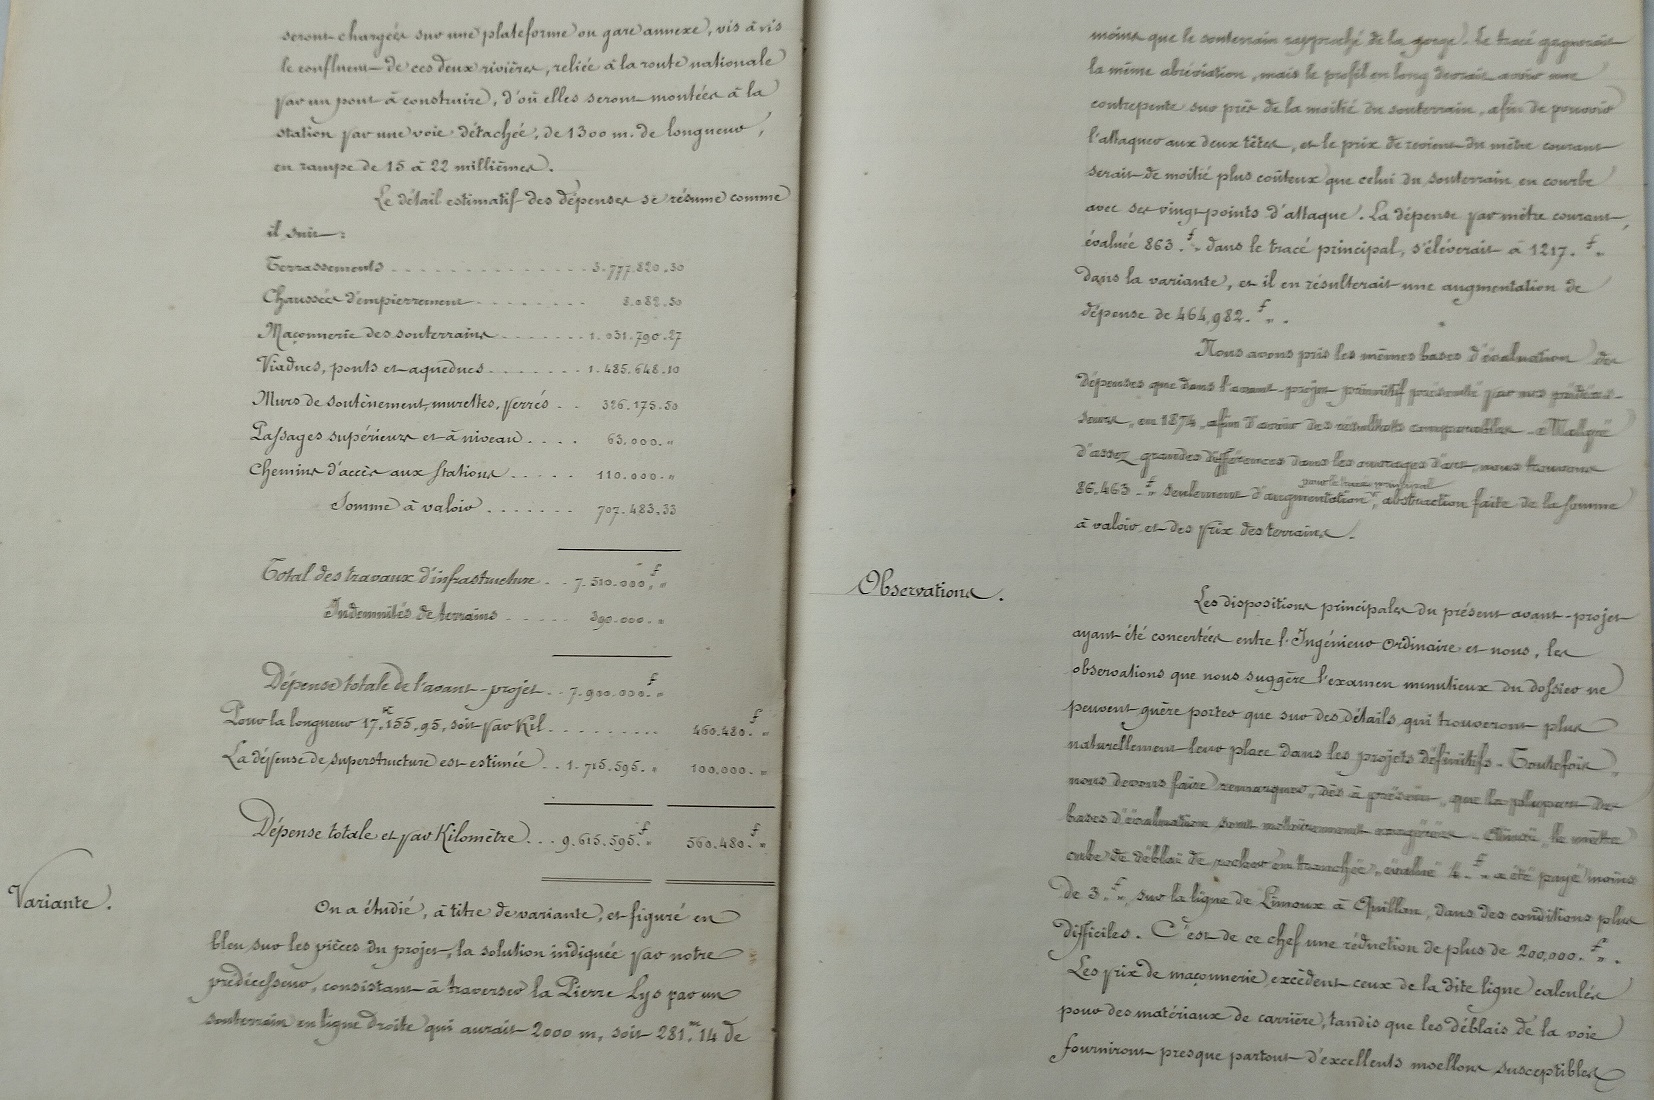 seront chargées sur une plateforme ou gare annexe, vis à vis
le confluent de ces deux rivières, reliée à la route nationale
par un pont à construire, d'où elles seront montées à la
station par une voie détachée, de 1300 m. de longueur,
en rampe de 15 à 22 millièmes.
Le détail estimatif des dépenses se résume comme
il suit :
Terrassements . . . . . . . . . . . . . . . 3.777.820.30
Chaussées d'empierrement . . . . . . . . 8.082.50
Maçonnerie des souterrains . . . . . . . 1.031.790.27
Viaducs, ponts et aqueducs . . . . . . . 1.485.648.10
Murs de soutènement, murettes, perrés . . 326.175.50
Passages supérieurs et à niveau . . . . 63.000. "
Chemins d'accès aux stations . . . . . 110.000. "
Somme à valoir . . . . . . . 707.483,33
Total des travaux d'infrastructure . . 7.510.000,f "
Indemnités de terrains . . . . . 390.000. "
Dépense totale de l'avant-projet . . 7.900.000.f "
Pour la longueur 17.K 155,95, soit par Kil . . . . . . . . . 460.480.f "
La dépense de superstructure est estimée . . 1.715.595. " 100,000. "
Dépense totale et par Kilomètre . . . 9.615.595.f " 560.480.f "
Variante.
On a étudié, à titre de variante, et figuré en
bleu sur les pièces du projet, la solution indiquée par notre
prédécesseur, consistant à traverser la Pierre Lys par un
souterrain en ligne droite qui aurait 2000 m, soit 281.m 14 de
moins que le souterrain rapproché de la gorge. Le tracé gagnerait
la même abréviation, mais le profil en long devrait avoir une
contrepente sur près de la moitié du souterrain, afin de pouvoir
l'attaquer aux deux têtes, et le prix de revient du mètre courant
serait de moitié plus coûteux que celui du souterrain en courbe
avec ses vingt points d'attaque. La dépense par mètre courant,
évaluée 863.f " dans le tracé principal, s'élèverait à 1217.f "
dans la variante, et il en résulterait une augmentation de
dépense de 464,982.f ".
Nous avons pris les mêmes bases d'évaluation des
dépenses que dans l'avant-projet primitif présenté par nos prédéces-
seurs, en 1874, afin d'avoir des résultats comparables. Malgré
d'assez grandes différences dans les ouvrages d'art, nous trouvons
pour le tracé principal
86.463.f " seulement d'augmentation, abstraction faite de la somme
à valoir et des prix des terrains.
Observations.
Les dispositions principales du présent avant-projet
ayant été concertées entre l'Ingénieur Ordinaire et nous, les
observations que nous suggère l'examen minutieux du dossier ne
peuvent guère porter que sur des détails, qui trouveront plus
naturellement leur place dans les projets définitifs. Toutefois,
nous devons faire remarquer, dès à présent, que la plupart des
bases d'évaluation sont notoirement exagérées. Ainsi, le mètre
cube de déblai de rocher en tranchée, évalué 4.f " a été payé moins
de 3.f ", sur la ligne de Limoux à Quillan, dans des conditions plus
difficiles. C'est de ce chef une réduction de plus de 200,000.f ".
Les prix de maçonnerie excèdent ceux de la dite ligne calculés
pour des matériaux de carrière, tandis que les déblais de la voie
fourniront presque partout d'excellents moellons susceptibles